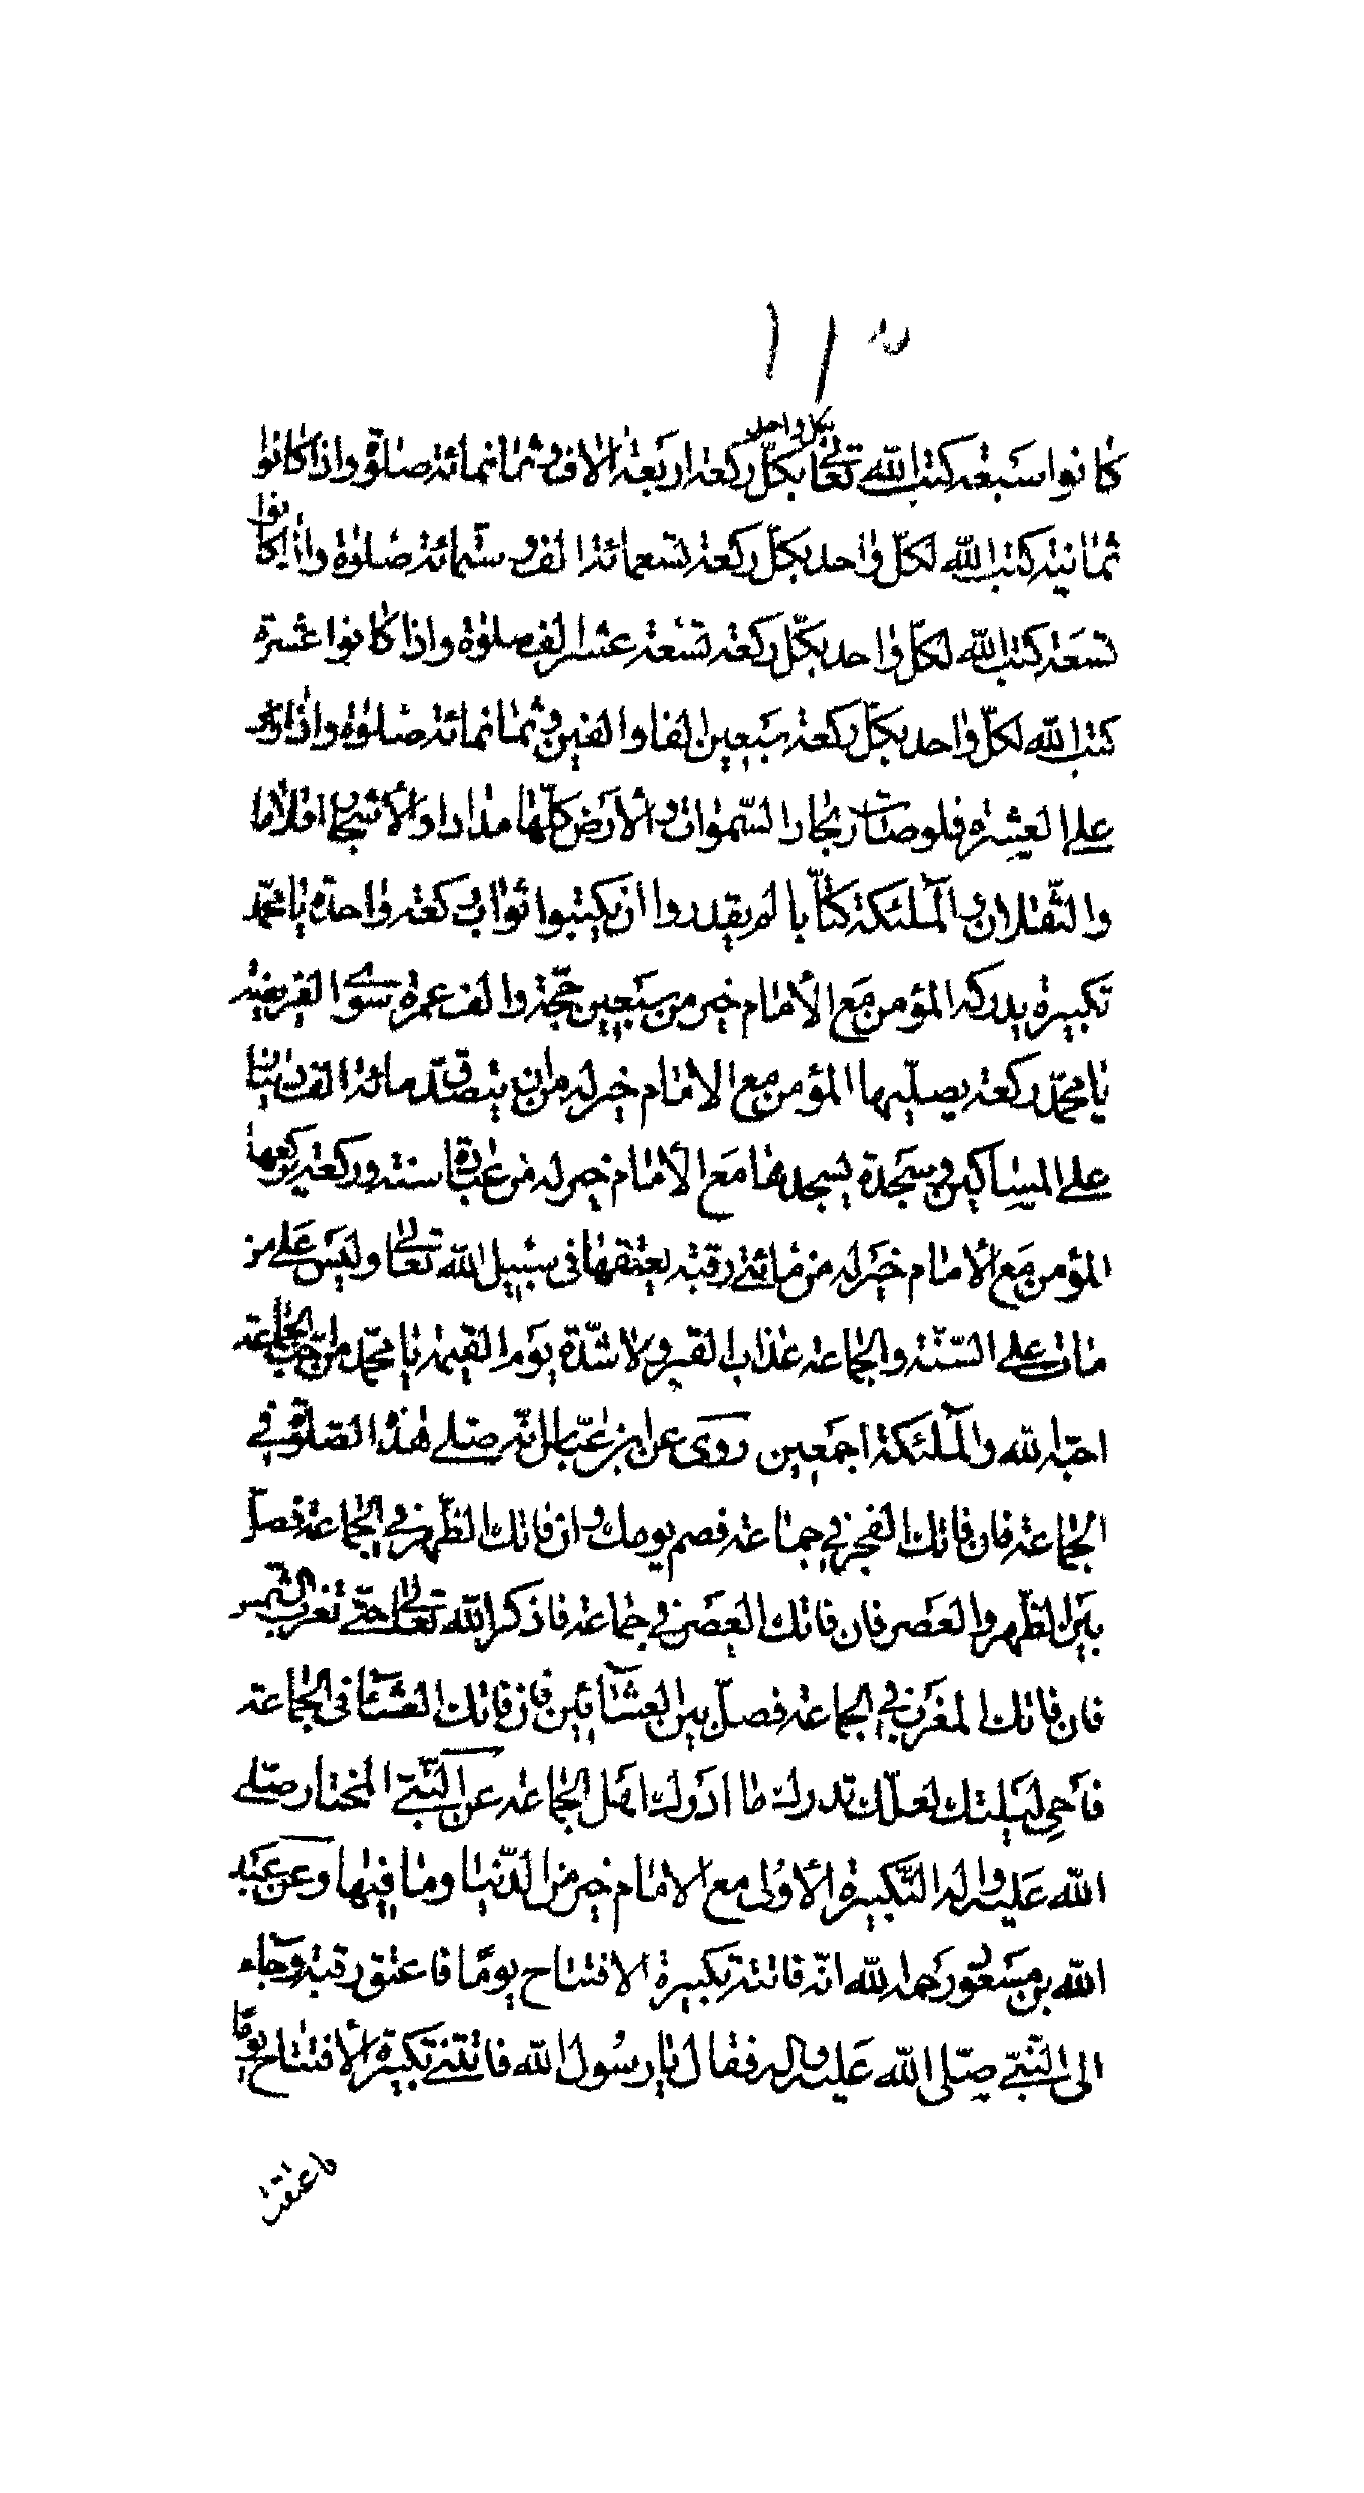 كانوا سبعة كتب الله تعالى لكل واحد بكل ركعة اربعة الاف و ثمانمائة صلوة واذا كانوا
ثمانية كتب الله لكل واحد بكل ركعة تسعمائة الف و ستمائة صلوة واذا كانوا
تسعة كتب الله لكل واحد بكل ركعة تسعة عشر الف صلوة واذا كانوا عشرة
كتب الله لكل واحد بكل ركعة سبعين الفا والفين و ثمانمائة صلوة واذا
على العشرة فلو صارت بحار السموات والأرض كلها مدادا والأشجار اقلاما
والثقلان والملئكة كتابا لم يقدروا ان يكتبوا ثواب ركعة واحدة يا محمد
تكبيرة يدركه المؤمن مع الأمام خير من سبعين حجة والف عمرة سوى الفريضة
يا محمد ركعة يصليها المؤمن مع الامام خير له من ان يتصدق مائة الف دينار
على المساكين وسجدة يسجدها مع الأمام خير له من عبادة سنة وركعة يركعها
المؤمن مع الأمام خير له من مائتي رقبة يعتقها في سبيل الله تعالى وليس على من
مات على السنة والجماعة عذاب القبر ولا شدة يوم القيمة يا محمد من احب الجماعة
احبه الله والملئكة اجمعين روى عن ابن عباس انه صلى هذه الصلوة في
الجماعة فان فاتك الفجر في جماعة فصم يومك و ان فاتك الظهر في الجماعة فصل
بين الظهر والعصر فان فاتك العصر في جماعة فاذكر الله تعالى حتى تغرب الشمس
فان فاتك المغرب في الجماعة فصل بين العشائين فان فاتك العشاء في الجماعة
فأحي ليلتك لعلك تدرك ما ادرك اهل الجماعة عن النبي المختار صلى
الله عليه واله التكبيرة الأولى مع الامام خير من الدنيا وما فيها وعن عبد
الله بن مسعود رحمه الله انه فاتته تكبيرة الافتتاح يوما فاعتق رقبة وجاء
الى النبي صلى الله عليه واله فقال يا رسول الله فاتتني تكبيرة الأفتتاح يوما
فاعتقت